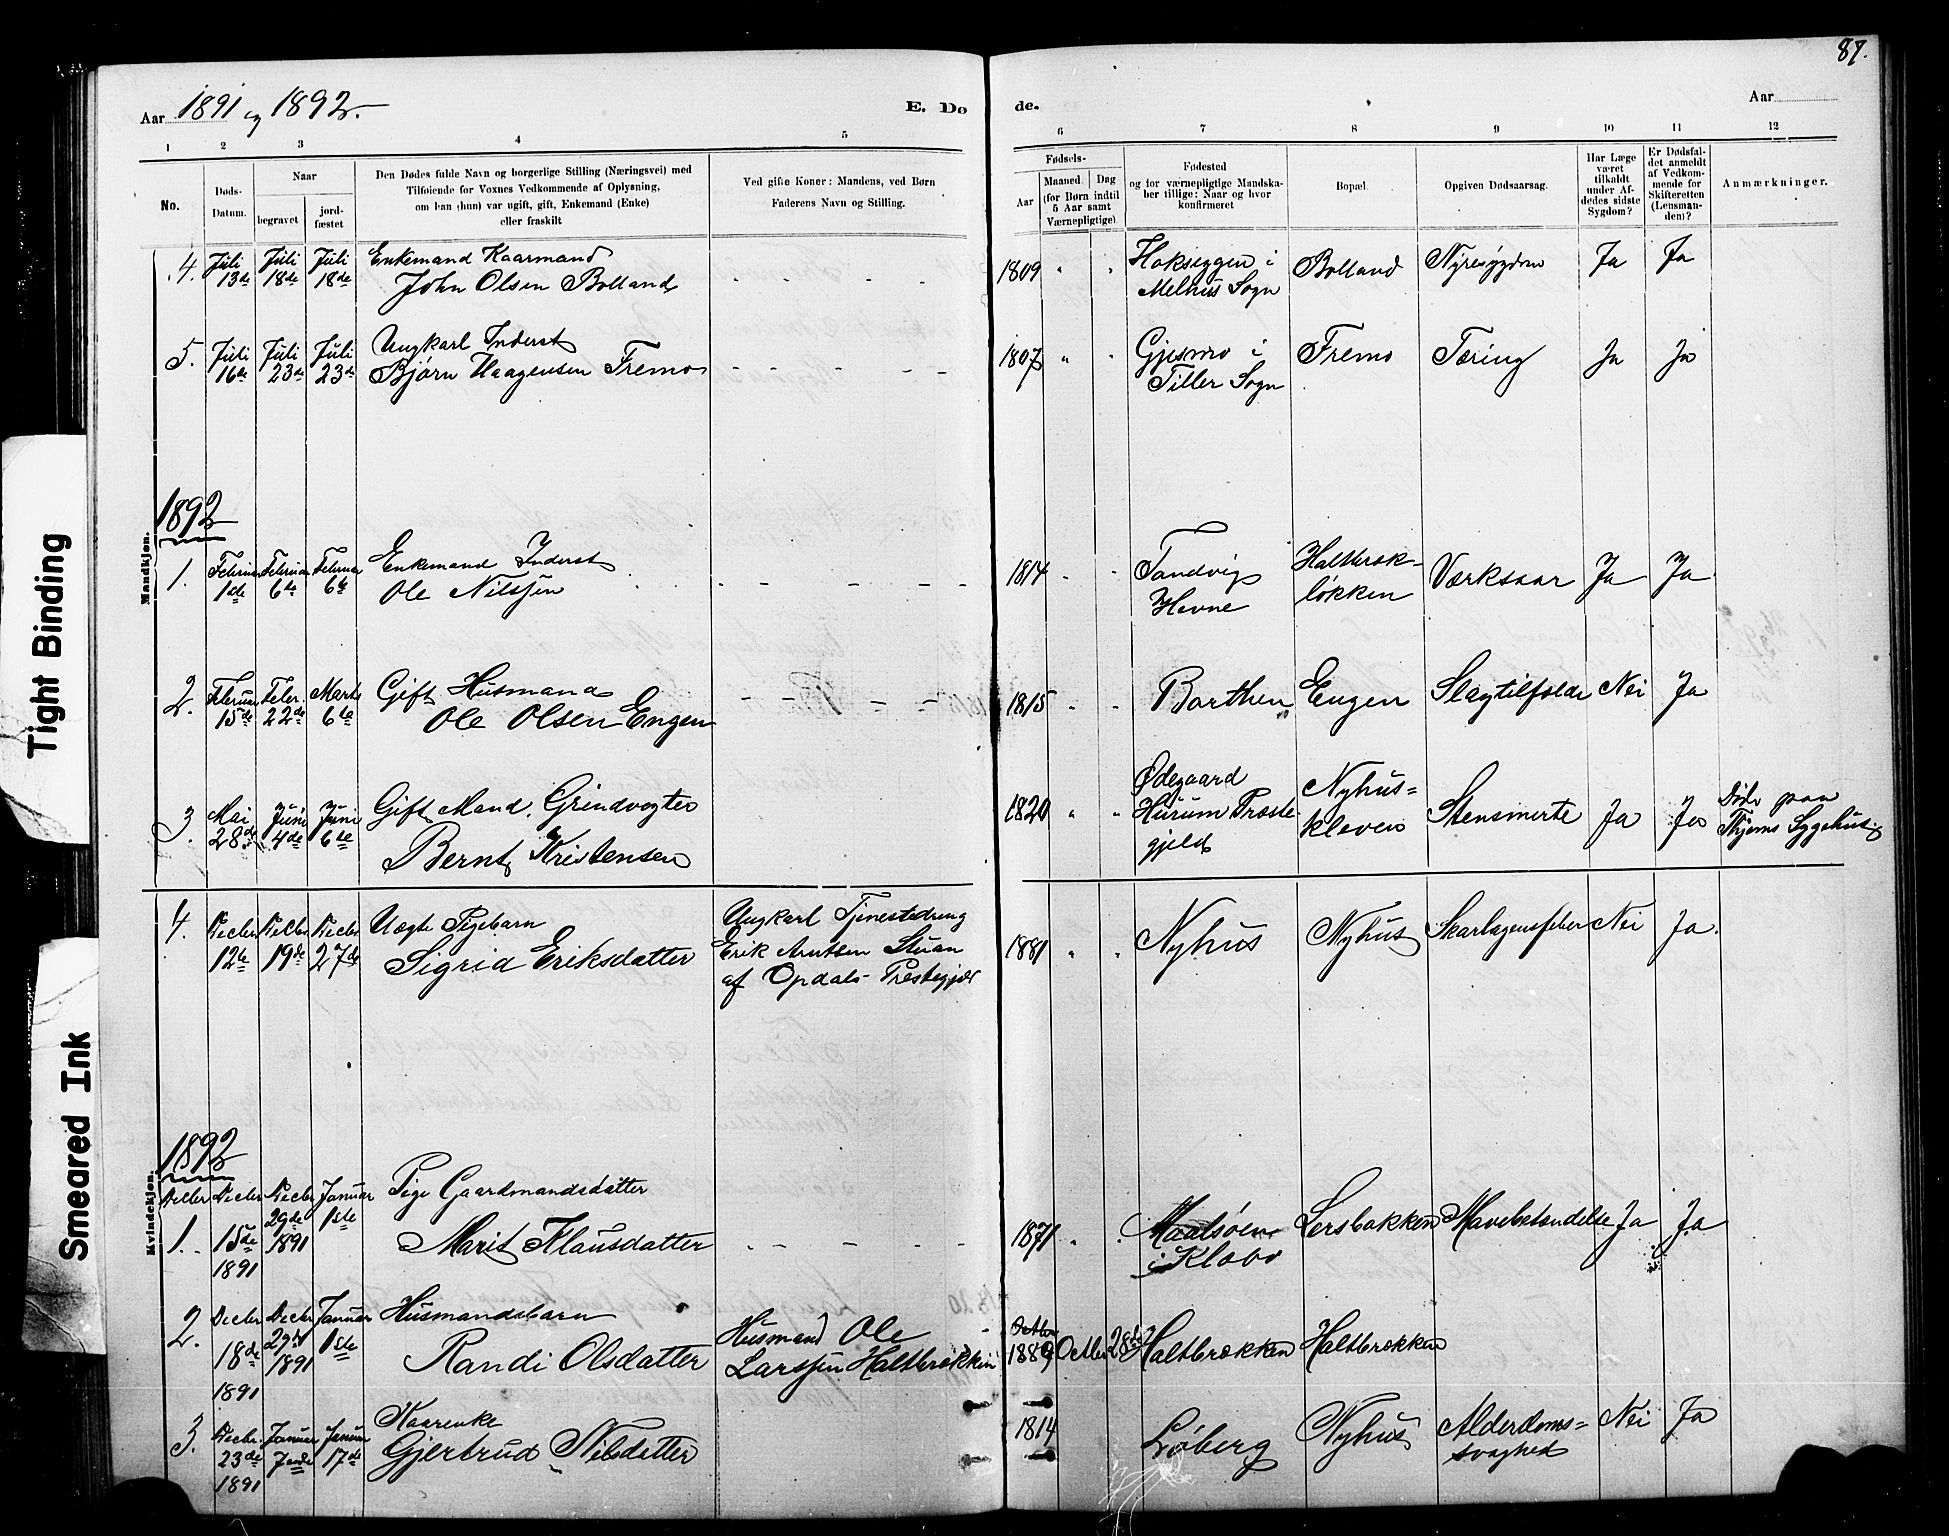 87.
Aar 1891 og 1892.
E. Dø
de.
Aar
1 2 3 4 5
6 7 8 9 10 11 12
No.
Døds-
Datum.
Naar
begravet
jord-
fæstet
Den Dødes fulde Navn og borgerlige Stilling (Næringsvei) med
Tilføiende for Voxnes Vedkommende af Oplysning,
om han (hun) var ugift, gift, Enkemand (Enke)
eller fraskilt
Ved gifte Koner: Mandens, ved Børn
Faderens Navn og Stilling.
Fødsels-
Aar
Maaned
Dag
(for Børn indtil
5 Aar samt
Værnepligtige).
Fødested
og for værnepligtige Mandska-
ber tillige: Naar og hvor
konfirmeret
Bopæl.
Opgiven Dødsaarsag.
Har Læge
været
tilkaldt
under Af-
dødes sidste
Sygdom?
Er Dødsfal-
det anmeldt
af Vedkom-
mende for
Skifteretten
(Lensman-
den)?
Anmærkninger.
4. Juli 13de Juli 18de Juli 18de
Enkemand Kaarmand
John Olsen Bolland
1809 Hokseggen i
Melhus Sogn
Bolland Nyresygdom Ja Ja
5. Juli 16de Juli 23de Juli 23de
Ungkarl Inderst
Bjørn Haagensen Fremo
1807 Gjesmo i
Tiller Sogn
Fremo Tæring Ja Ja
Mandkjøn.
1892
1. Februar 1de Februar 6te Februar 6te
Enkemand Inderst
Ole Nilssen
1814 Tandvig
Hevne
Haltbræk-
løkken
Værksaar Ja Ja
2. Februar 15de Febr. 22de Marts 6te
Gift Husmand
Ole Olsen Engen
1815 Barthen Engen Slagtilfælde Nei Ja
3. Mai 28de Juni 4de Juni 6te
Gift Mand. Grindvogter
Bernt Kristensen
1820 Ødegaard
Hurum Præste-
gjeld
Nyhus-
kleven
Stensmerte Ja Ja
Døde paa
Thjems Sygehus
4. Decbr 12te Decbr 19de Decbr 27de
Uægte Pigebarn
Sigrid Eriksdatter
Ungkarl Tjenestedreng
Erik Arntsen Stuan
af Opdals Prestegjæld
1881 Nyhus Nyhus Skarlagensfeber Nei Ja.
Kvindekjøn.
1892
1. Decbr 15de 1891 Decbr 29de 1891 Januar 1ste
Pige Gaardmandsdatter
Marit Klausdatter
1871 Maalsøen
i Klæbo
Lersbakken Mavebetændelse Ja Ja
2. Decbr 18de 1891 Decbr 29de 1891 Januar 1ste
Husmandsbarn
Randi Olsdatter
Husmand Ole
Larssen Haltbrækken
1889 Octbr 28de Haltbrækken Haltbrækken
3. Decbr. 23de 1891 Januar 7ende Januar 17de
Kaarenke
Gjertrud Nilsdatter
1814 Løberg Nyhus Alderdoms=
svaghed
Nei Ja
Tight Binding
Smeared Ink